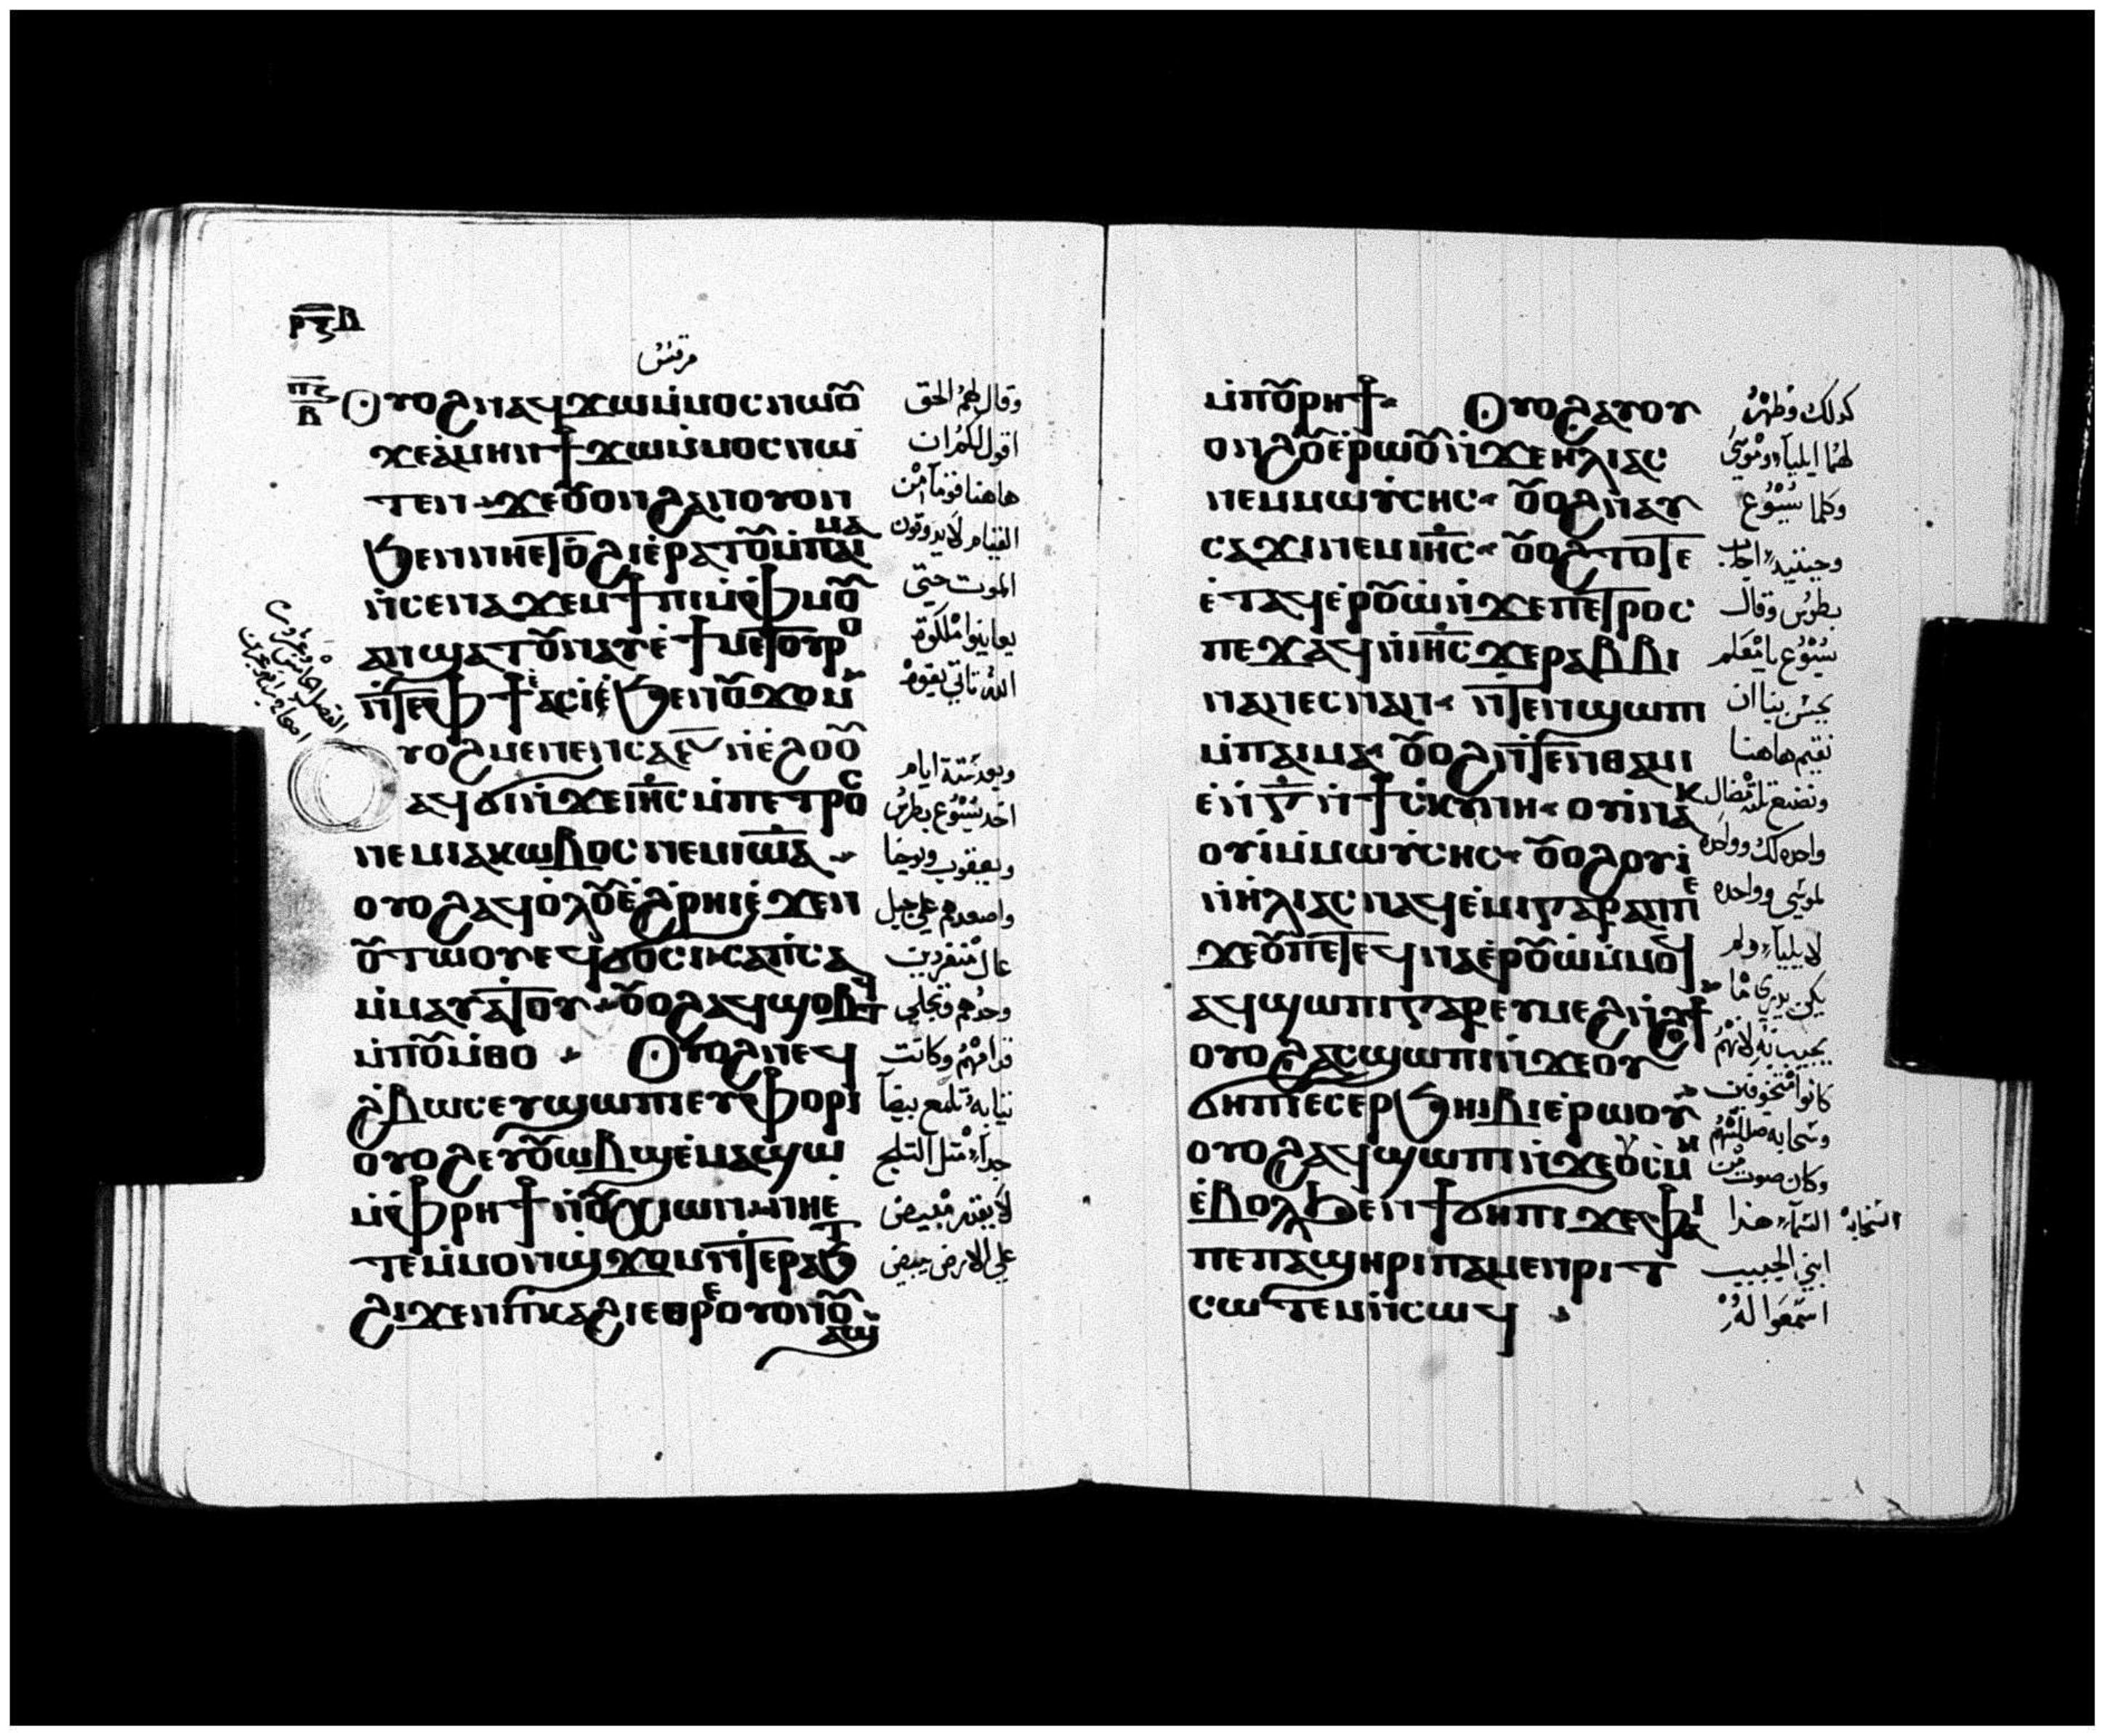 ⲣ︦ⲝ︦ ⲃ
مرقس
ⲡ︦ⲍ︦
ⲃ
Ⲟⲩⲟϩ ⲛⲁϥϫⲱⲙ̇ⲙⲟⲥⲛⲱⲟⲩ
ϫⲉⲁ̇ⲙⲏⲛϯϫⲱⲙ̇ⲙⲟⲥⲛⲱ
ⲧⲉⲛ ϫⲉⲟⲩⲟⲛϩⲁⲛⲟⲩⲟⲛ
ϧⲉⲛⲛⲏⲉⲧⲟϩⲓⲉ̇ⲣⲁⲧⲟⲩⲙ̇ⲡⲁⲓⲙⲁ
ⲛ̇ⲥⲉⲛⲁϫⲉⲙϯⲡⲓⲙ̇ⲫⲙⲟⲩ
ⲁⲛϣⲁⲧⲟⲩⲛⲁⲩⲉ̇ϯⲙⲉⲧⲟⲩⲣⲟ
ⲛ̇ⲧⲉⲫϯⲉ̇ⲁⲥⲓ̇ϧⲉⲛⲟⲩϫⲟⲙ
ⲩⲟϩⲙⲉⲛⲉⲛⲥⲁⲋ̅ⲛ̇ⲉ̇ϩⲟⲟⲩ
ⲁϥϭⲓⲛ̇ϫⲉⲓⲏ̅ⲥ̅ⲙ̇ⲡⲉⲧⲣⲟⲥ
ⲛⲉⲙⲓⲁⲕⲱⲃⲟⲥⲛⲉⲙⲓⲱ̅ⲁ̅
ⲟⲩⲟϩⲁϥⲟⲗⲟⲩⲉ̇ϩⲣⲏⲓⲉ̇ϫⲉⲛ
ⲟⲩⲧⲱⲟⲩⲉϥϭⲟⲥⲓⲛⲥⲁⲡ̇ⲥⲁ
ⲙ̇ⲙⲁⲩⲁⲧⲟⲩ ⲟⲩⲟϩⲁϥϣⲟⲃⲧϥ
ⲙ̇ⲡⲟⲩⲙ̇ⲑⲟ Ⲟⲩⲟϩⲛⲉϥ
ϩⲃⲱⲥⲉⲩϣⲱⲡⲓⲉⲩⲫⲟⲣⲓ
ⲟⲩⲟϩⲉⲩⲟⲩⲱⲃϣⲉ̇ⲙⲁϣⲱ
ⲙ̇ⲫⲣⲏϯⲛ̇ⲟⲩⲭⲓⲱⲛⲛⲏⲉ
ⲧⲉⲙ̇ⲙⲟⲛϣϫⲟⲙⲛ̇ⲧⲉⲣⲁϧⲧ
ϩⲓϫⲉⲛⲡⲓⲕⲁϩⲓⲉⲑⲣⲉⲟⲩⲟⲛⲟⲩ
ⲁϣ
وقال لهم الحق
اقول لكم ان
هاهنا قوماً من
القيام لا يدوقون
الموت حتي
يعاينوا ملكوة
الله تاتي بقوه
وبعد ستة ايام
اخد يسوع بطرس
ويعقوب ويوحنا
واصعدهم علي جبل
عال منفردين
وحدهم وتجلي
قدامهم وكانت
ثيابه تلمع بيضآ
جداً مثل الثلج
لا يقدر مبيض
علي الارض يبيض
ⲙ̇ⲡⲟⲩⲣⲏϯ Ⲟⲩⲟϩⲁⲩⲟⲩ
ⲟⲛϩⲟⲩⲉ̇ⲣⲱⲟⲩⲛ̇ϫⲉⲏⲗⲓⲁⲥ
ⲛⲉⲙⲙⲱⲩⲥⲏⲥ ⲟⲩⲟϩⲛⲁⲩ
ⲥⲁϫⲓⲛⲉⲙⲓⲏ̅ⲥ̅ ⲟⲩⲟϩⲧⲟⲧⲉ
ⲉ̇ⲧⲁϥⲉ̇ⲣⲟⲩⲱⲛ̇ϫⲉⲡⲉⲧⲣⲟⲥ
ⲡⲉϫⲁϥⲛ̇ⲓⲏ̅ⲥ̅ϫⲉⲣⲁⲃⲃⲓ
ⲛⲁⲛⲉⲥⲛⲁⲛ ⲛ̇ⲧⲉⲛϣⲱⲡⲓ
ⲙ̇ⲡⲁⲓⲙⲁ ⲟⲩⲟϩⲛ̇ⲧⲉⲛⲑⲁⲙⲓ
ⲉ̇ⲛ̇ⲅ̅ⲛ̇ϯⲥⲕⲏⲛⲏ ⲟⲩⲓ̇ⲛⲁⲕ
ⲟⲩⲓ̇ⲙ̇ⲙⲱⲩⲥⲏⲥ ⲟⲩⲟϩⲟⲩⲓ̇
ⲛ̇ⲏ̇ⲗⲓⲁⲥⲛⲁϥⲉ̇ⲙⲓⲅⲁⲣⲁⲛⲡⲉ
ϫⲉⲟⲩⲡⲉⲧⲉϥⲛⲁⲉ̇ⲣⲟⲩⲱⲙ̇ⲙⲟϥ
ⲁϥϣⲱⲡⲓⲅⲁⲣⲉⲩⲙⲉϩⲛ̇ϩⲟϯ
ⲟⲩⲟϩⲁⲥϣⲱⲡⲓⲛ̇ϫⲉⲟⲩ
ϭⲏⲡⲓⲉⲥⲉⲣϧⲏⲓⲃⲓⲉ̇ⲣⲱⲟⲩ
ⲟⲩⲟϩⲁϥϣⲱⲡⲓⲛ̇ϫⲉⲟⲩⲥⲙⲏ
ⲉ̇ⲃⲟⲗϧⲉⲛϯϭⲏⲡⲓϫⲉⲫⲁⲓ
ⲡⲉⲡⲁϣⲏⲣⲓⲡⲁⲙⲉⲛⲣⲓⲧ
ⲥⲱⲧⲉⲙⲛ̇ⲥⲱϥ
كدلك وظهر
لهما ايليآ وموسي
وكلما يسوع
وحينيد اجاب
بطرس وقال
يسوع يا معلم
يحسن بنا ان
نقيم هاهنا
ونصنع تلت مضال
واحده لك وواحده
لموسي وواحده
لايليآ ولم
يكن يدري ما
يجيب به لانهم
كانوا متخوفين
وسحابه ضللتهم
وكان صوت من
السمآ هذا السحابه
ابني الحبيب
اسمعوا له